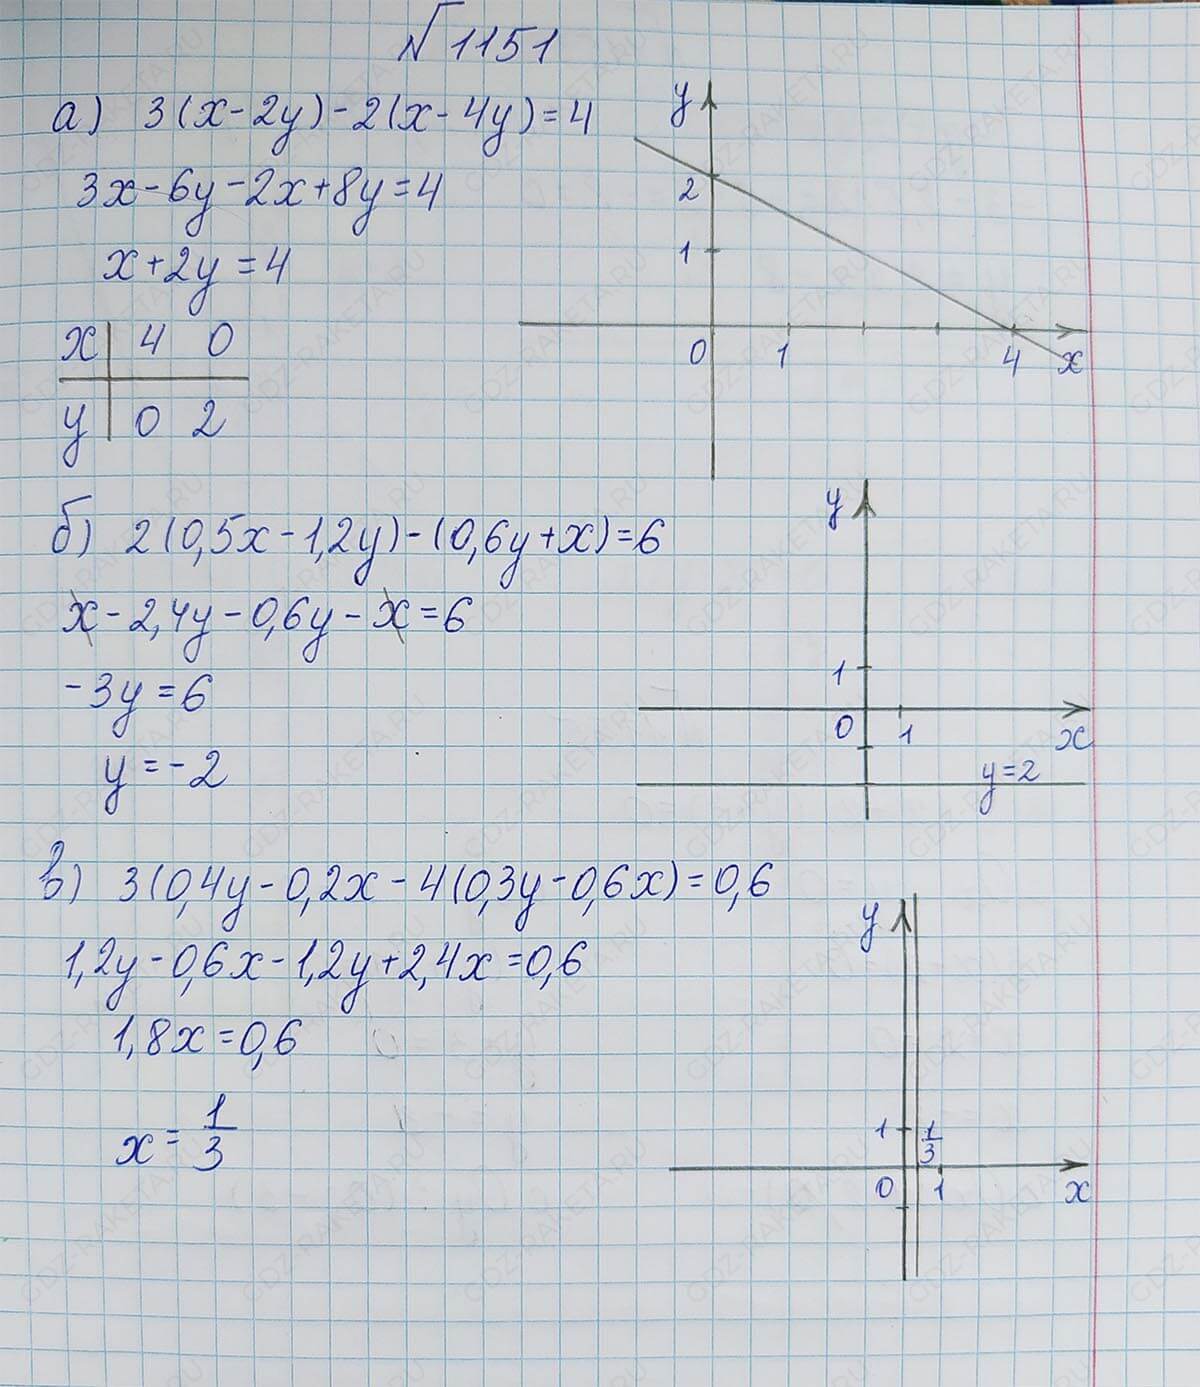 №1151
а) 3(x-2y)-2(x-4y)=4
3x-6y-2x+8y=4
x+2y=4
x | 4 0
y | 0 2
y
2
1
0 1 4 x
б) 2(0,5x-1,2y)-(0,6y+x)=6
x-2,4y-0,6y-x=6
-3y=6
y=-2
y
1
0 1 x
y=2
в) 3(0,4y-0,2x-4(0,3y-0,6x)=0,6
1,2y-0,6x-1,2y+2,4x=0,6
1,8x=0,6
x=1/3
y
1 1/3
0 1 x
GDZ-RAKETA.RU